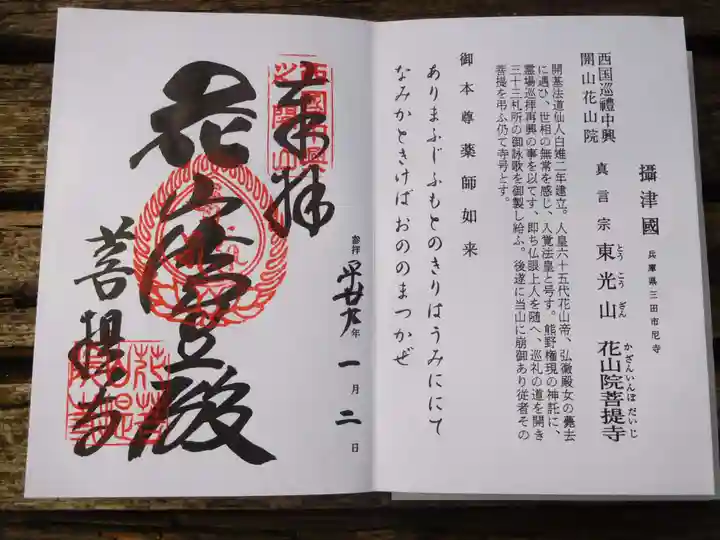 攝津國
兵庫県三田市尼寺
西国巡禮中興
開山花山院
真言宗
東光山
とうこうざん
花山院菩提寺
かざんいんぼだいじ
開基法道仙人白雉二年建立。人皇六十五代花山帝、弘徽殿女の薨去
に遇ひ、世相の無常を感じ、入覚法皇と号す。熊野権現の神託に、
霊場巡拝再興の事を以てす、即ち仏眼上人を随へ、巡礼の道を開き
三十三札所の御詠歌を御製し給ふ。後遂に当山に崩御あり従者その
菩提を弔ふ仍て寺号とす。
御本尊薬師如来
ありまふじふもとのきりはうみににて
なみかときけばおののまつかぜ
奉拝
参拝
平廿九年一月二日
花山法皇殿
菩提寺